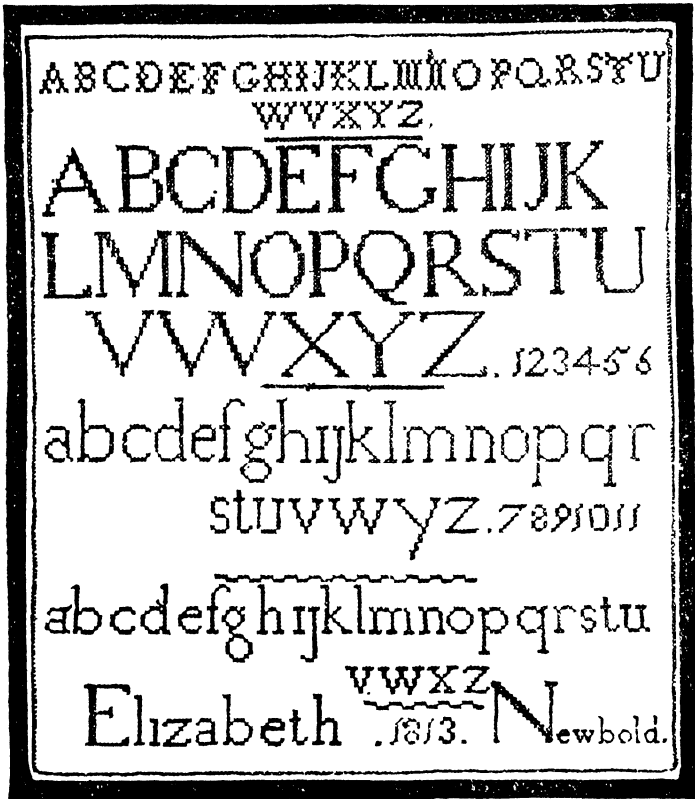 ABCDEFGHIJKLMNOPQRSTU
WVXYZ.
ABCDEFGHIJK
LMNOPQRSTU
VWXYZ. 123456
abcdefghıjklmnopqr
stuvwyz. 7891011
abcdefghıjklmnopqrstu
vwxz
Elızabeth .1813. Newbold.